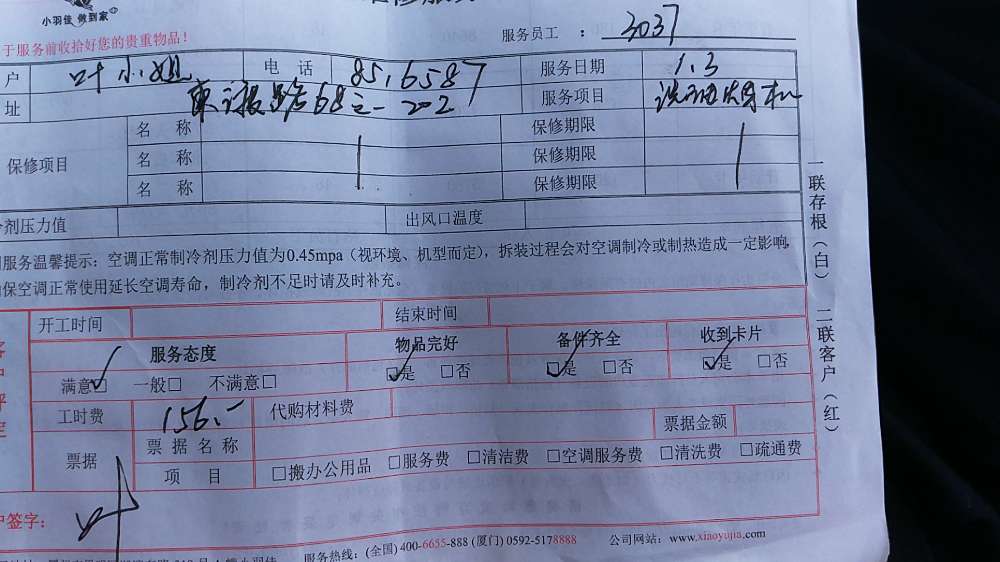 小羽佳 做到家
于服务前收拾好您的贵重物品！
服务员工 ： 3037
户 叶小姐 电 话 85,6587 服务日期 1.3
址 68之一 202 服务项目
保修项目 名 称 保修期限
名 称 保修期限
名 称 保修期限
剂压力值 出风口温度
服务温馨提示：空调正常制冷剂压力值为0.45mpa（视环境、机型而定），拆装过程会对空调制冷或制热造成一定影响，
保空调正常使用延长空调寿命，制冷剂不足时请及时补充。
开工时间 结束时间
服务态度 物品完好 备件齐全 收到卡片
满意☑ 一般□ 不满意□ ☑是 □否 ☑是 □否 ☑是 □否
工时费 156.- 代购材料费
票据 票据名称 票据金额
项 目 □搬办公用品 □服务费 □清洁费 □空调服务费 □清洗费 □疏通费
户签字： 叶
服务热线：(全国) 400-6655-888 (厦门) 0592-5178888 公司网站：www.xiaoyujia.com
一联存根（白） 二联客户（红）